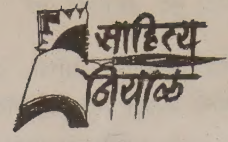 साहित्य
नियाळ